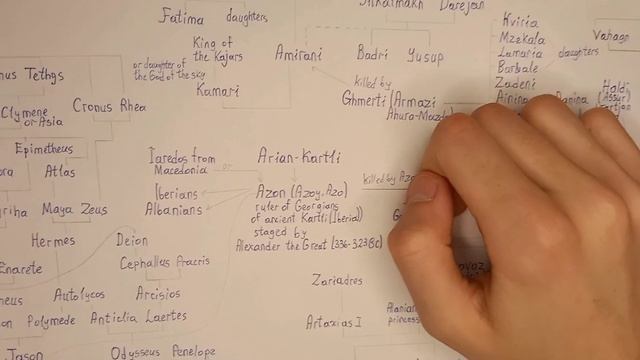 Fatima daughters
Darejan
King of
the Kajars
or daughter of
the God of the sky
Kamari
Amirani Badri Yusup
killed by
Ghmerti (Armazi
Ahura-Mazda)
Kviria
Mzekala
Lamaria
Barbale daughters
Zadeni
Vahagn
Haldi
Tethys
Clymene
or Asia
Cronus Rhea
Epimetheus
Atlas
Maya Zeus
Hermes
Deion
Cephallus Procris
Autolycos Arcisios
Polymede Anticlia Laertes
Jason Odysseus Penelope
Iaredos from
Macedonia
or
Arian-Kartli
Iberians
Albanians
Azon (Azoy, Azo)
ruler of Georgians
of ancient Kartli (Iberia)
staged by
Alexander the Great (336-323BC)
killed by Azo
Zariadres
Artaxias I
Alanian
princess